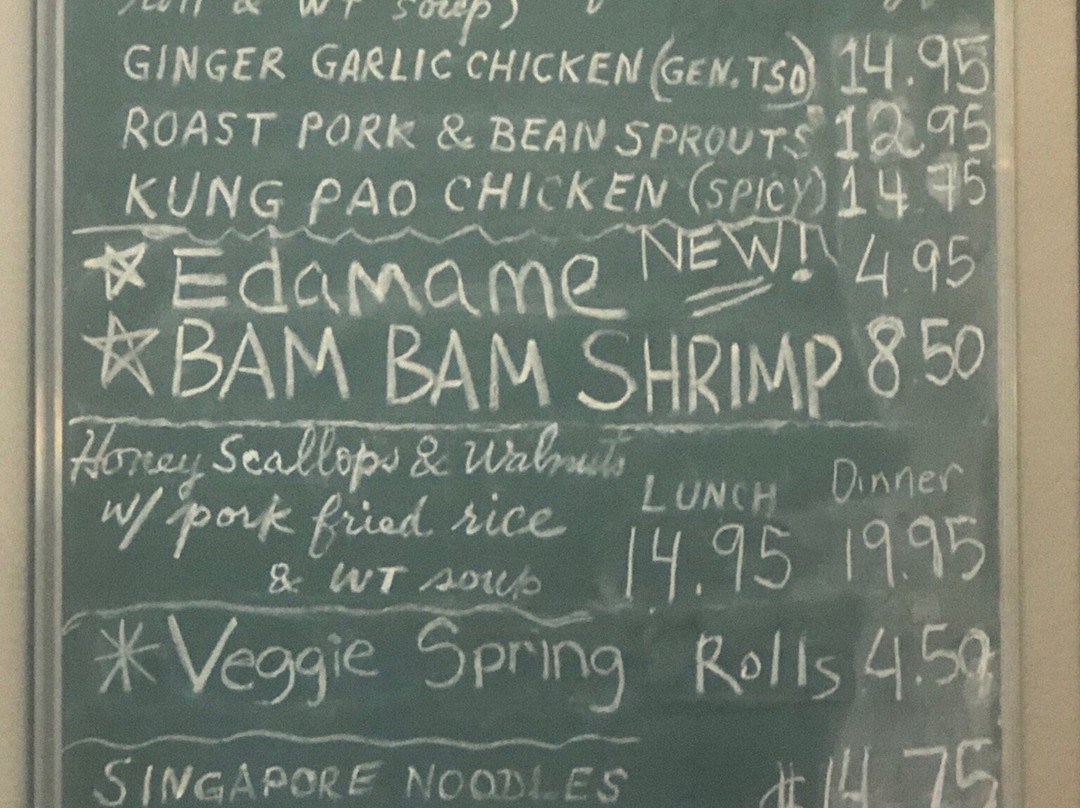 & WT soup)
GINGER GARLIC CHICKEN (GEN. TSO) 14.95
ROAST PORK & BEAN SPROUTS 12.95
KUNG PAO CHICKEN (SPICY) 14.75
Edamame NEW! 4.95
BAM BAM SHRIMP 8.50
Honey Scallops & Walnuts
LUNCH Dinner
w/ pork fried rice 14.95 19.95
& WT soup
Veggie Spring Rolls 4.50
SINGAPORE NOODLES $14.75